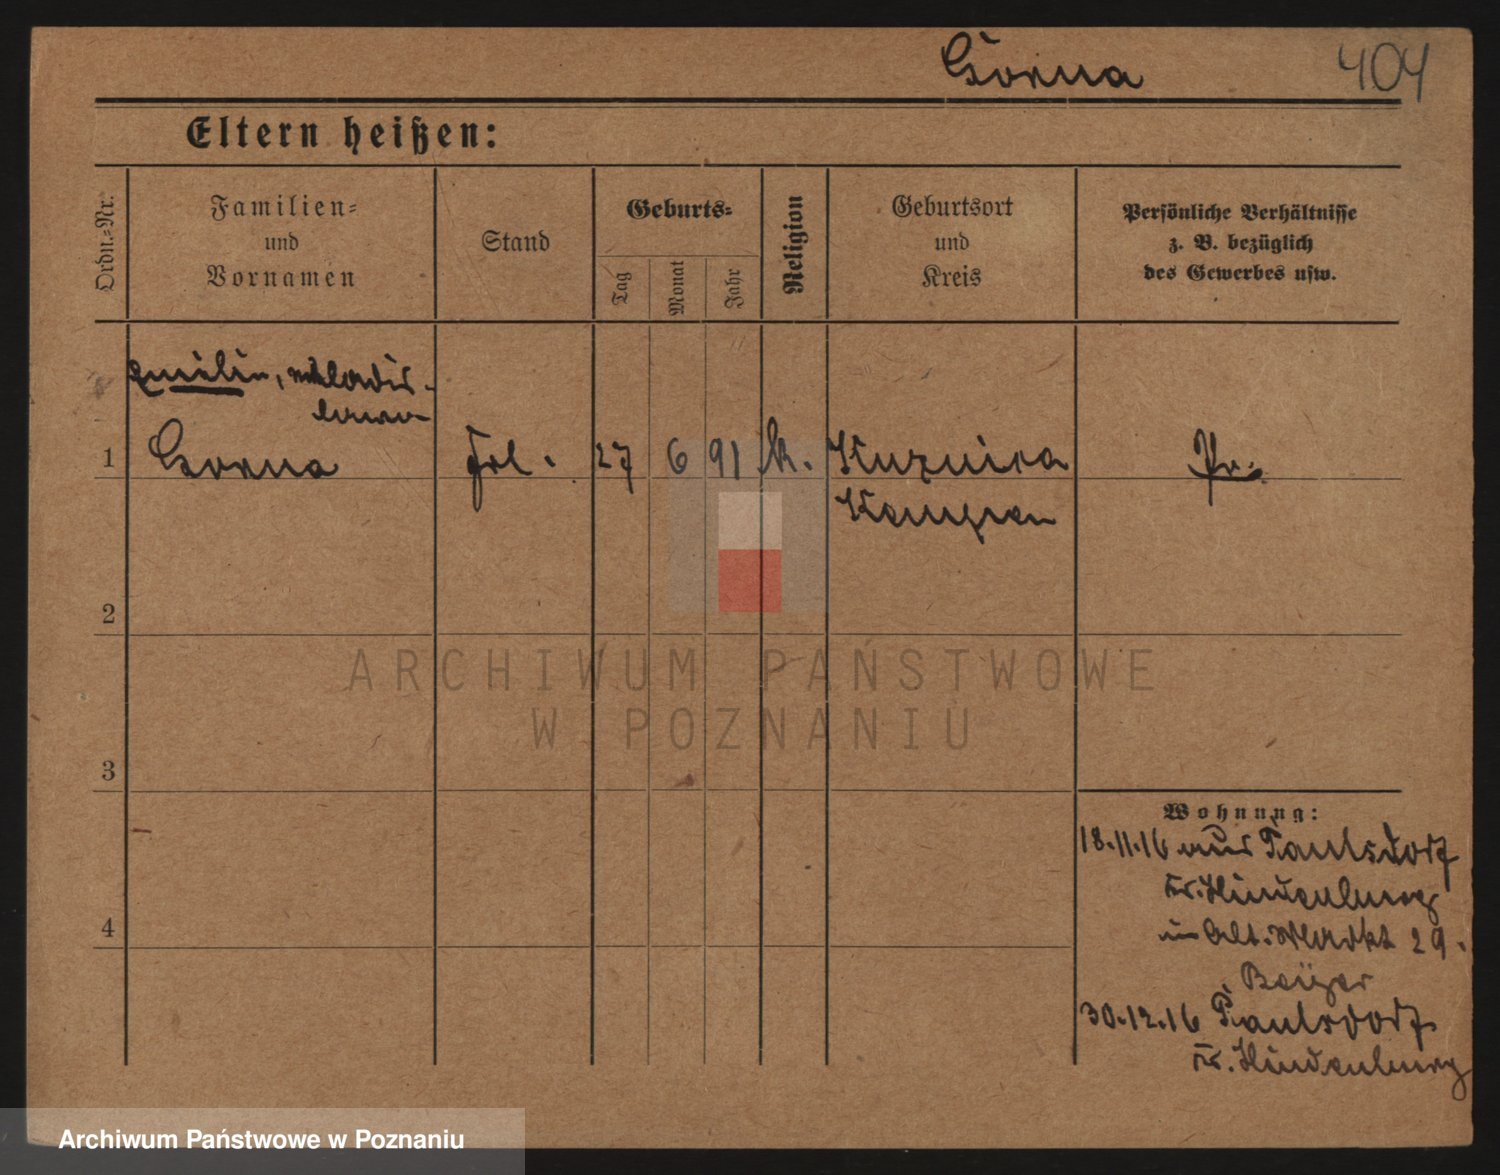 Gorna 404
Eltern heißen:
Ordn.-Nr.
Familien-
und
Vornamen
Stand
Geburts-
Tag
Monat
Jahr
Religion
Geburtsort
und
Kreis
Persönliche Verhältnisse
z. B. bezüglich
des Gewerbes usw.
Emilie, Wladis-
lawa
1 Gorna Frl. 27 6 91 k. Kuznica Pr.
Kempen
2
ARCHIWUM PAŃSTWOWE
W POZNANIU
3
Wohnung:
18.11.16 aus Paulsdorf
Kr. Hindenburg
in Alt. Markt 29.
30.12.16 Paulsdorf
Kr. Hindenburg
4
Archiwum Państwowe w Poznaniu